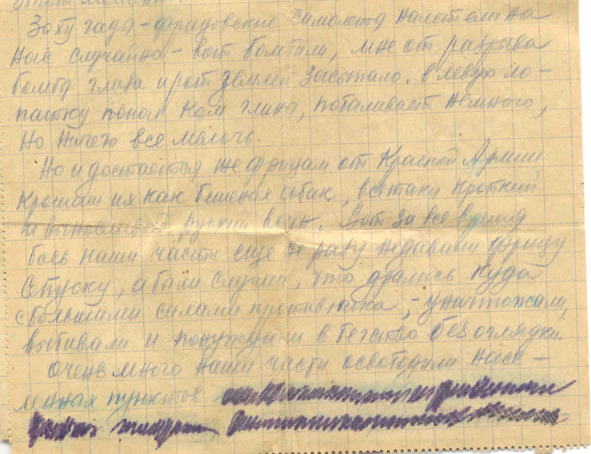 Зазу гады - фрицовские самолеты налетели на
нас случайно - вот бомтили, мне от разрыва
бомбы глаза и рот землей засыпало. в левую ло-
патку попол ком глины, поталивает немного,
но ничего все мелочь.
Но и достается же фрицам от Красной Армии
Крошат их как бешеных собак, всетаки кроткий
и выносливый руский воин. Вот за все время
боев наши части еще не разу недавали фрицу
спуску, а были случаи, что дрались куда
с большими силами противника, - уничтожали,
выбивали и понуждали в бегство без оглядки.
очень много наши части освободили насе-
ленных пунктов